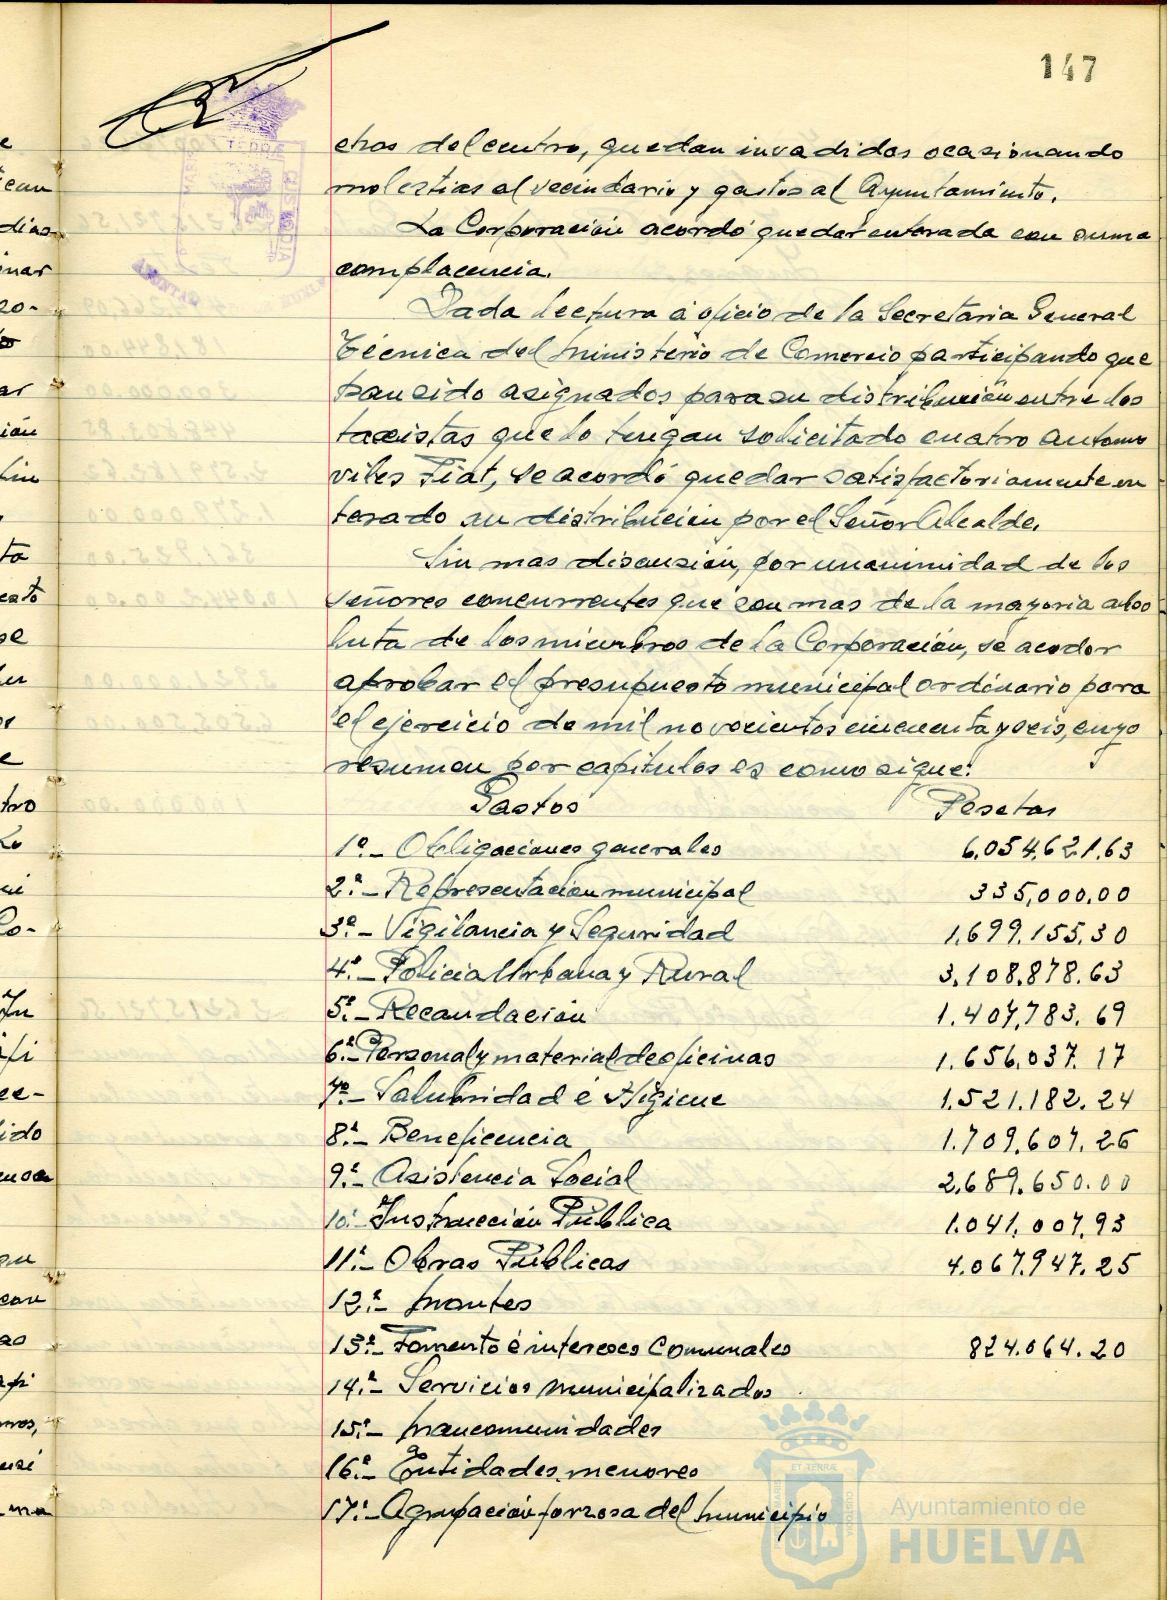 147
chos del centro, quedan invadidos ocasionando
molestias al vecindario y gastos al Ayuntamiento.
La Corporación acordó quedar enterada con suma
complacencia.
Dada lectura a oficio de la Secretaria General
Técnica del Ministerio de Comercio participando que
han sido asignados para su distribución entre los
taxistas que lo tengan solicitado cuatro automo
viles Fiat, se acordó quedar satisfactoriamente en
terado su distribución por el Señor Alcalde.
Sin mas discusión, por unanimidad de los
señores concurrentes que son mas de la mayoria abso
luta de los miembros de la Corporación, se acodor
aprobar el presupuesto municipal ordinario para
el ejercicio de mil novecientos cincuenta y seis, cuyo
resumen por capitulos es como sigue:
Gastos Pesetas
1º.- Obligaciones generales 6.054.621.63
2º.- Representacion municipal 335,000.00
3º.- Vigilancia y Seguridad 1.699.155.30
4º.- Policia Urbana y Rural 3.108.878.63
5º.- Recaudación 1.407.783.69
6º.- Personal y material de oficinas 1.656.037.17
7º.- Salubridad é Higiene 1.521.182.24
8º.- Beneficencia 1.709.607.26
9º.- Asistencia Social 2.689.650.00
10º Instrucción Pública 1.041.007.93
11º.- Obras Públicas 4.067.947.25
12º.- Montes
13º.- Fomento é intereses Comunales 824.064.20
14º.- Servicios municipalizados
15º.- Mancomunidades
16º.- Entidades menores
17º.- Agrupación forzosa del Municipio
Ayuntamiento de
HUELVA